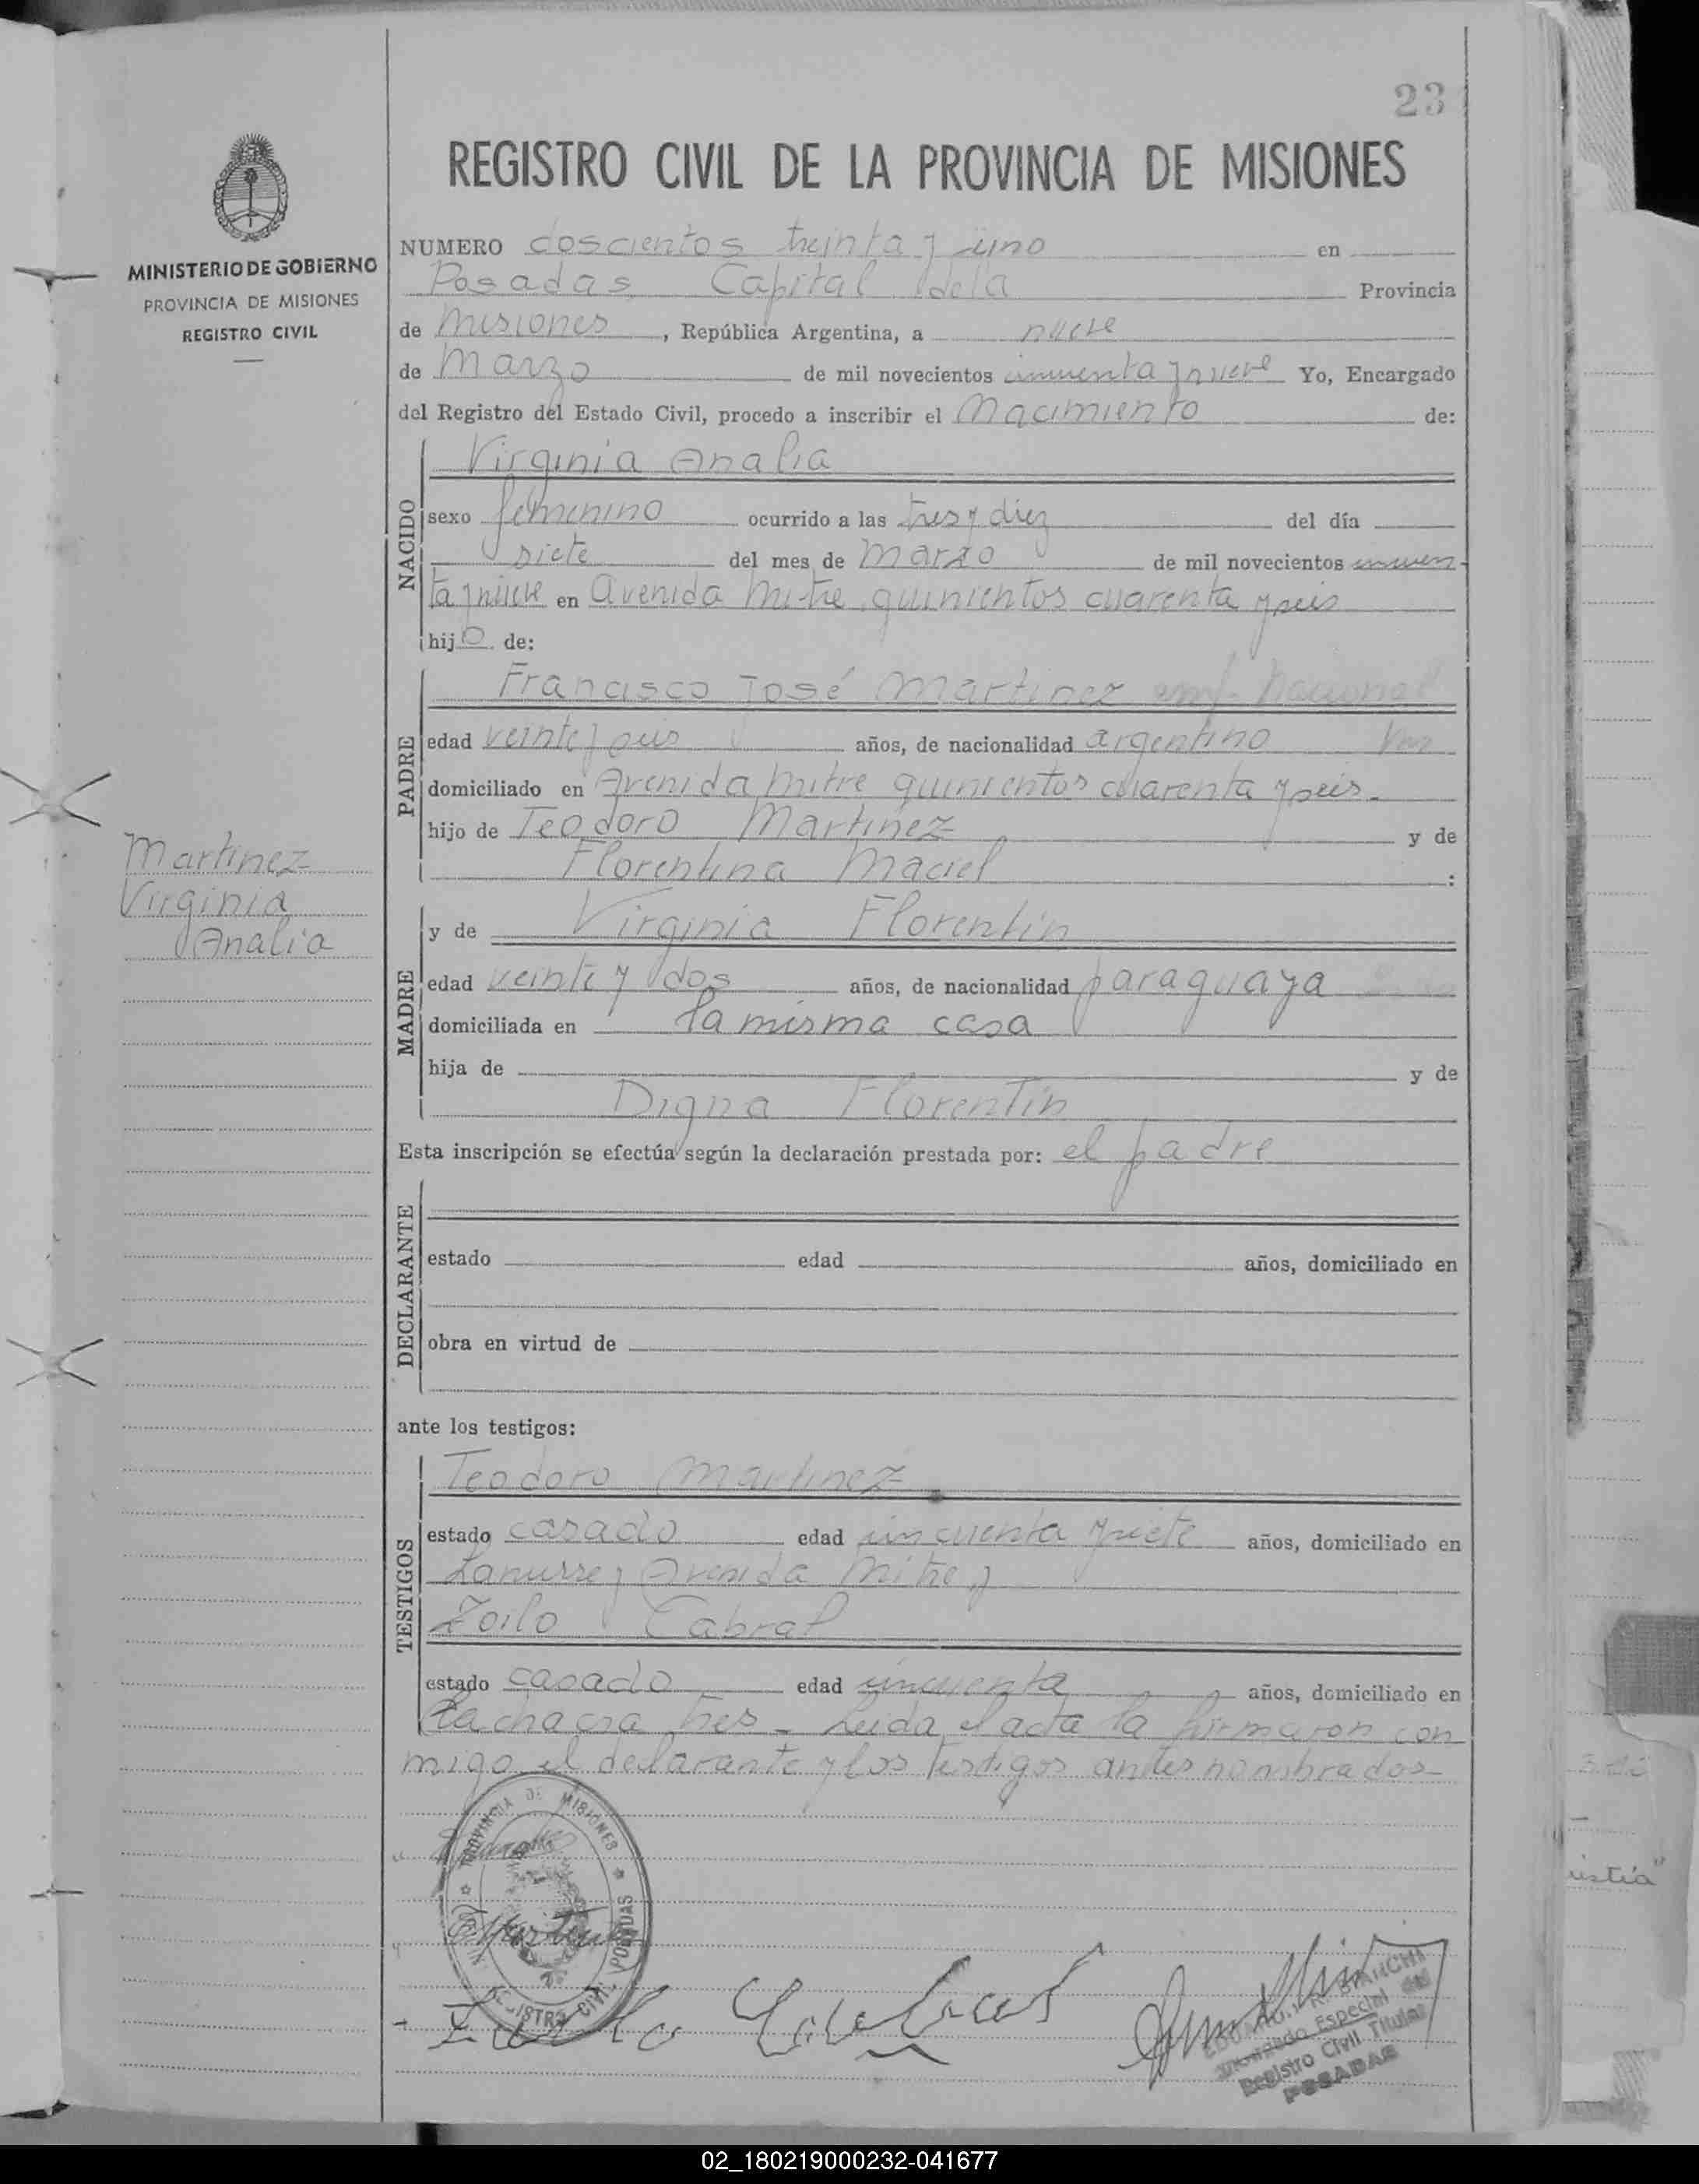 23
REGISTRO CIVIL DE LA PROVINCIA DE MISIONES
MINISTERIO DE GOBIERNO
PROVINCIA DE MISIONES
REGISTRO CIVIL
NUMERO doscientos treinta y uno en
Posadas Capital de la Provincia
de Misiones, República Argentina, a nueve
de Marzo de mil novecientos cincuenta y nueve Yo, Encargado
del Registro del Estado Civil, procedo a inscribir el Nacimiento de:
NACIDO
Virginia Analia
sexo femenino ocurrido a las tres y diez del día
siete del mes de Marzo de mil novecientos cincuen
ta y nueve en Avenida Mitre quinientos cuarenta y seis
hija de:
PADRE
Francisco José Martinez
edad veinte y seis años, de nacionalidad argentino
domiciliado en Avenida Mitre quinientos cuarenta y seis
hijo de Teodoro Martinez y de
Florentina Maciel :
Martinez
Virginia
Analia
MADRE
y de Virginia Florentin
edad veinte y dos años, de nacionalidad paraguaya
domiciliada en la misma casa
hija de y de
Digna Florentin
Esta inscripción se efectúa según la declaración prestada por: el padre
DECLARANTE
estado edad años, domiciliado en
obra en virtud de
ante los testigos:
TESTIGOS
Teodoro Martinez
estado casado edad cincuenta y siete años, domiciliado en
Lanusse y Avenida Mitre y
Zoilo Cabral
estado casado edad cincuenta años, domiciliado en
la chacra tres - Leida el acta la firmaron con
migo el declarante y los testigos antes nombrados
PROVINCIA DE MISIONES
REGISTRO CIVIL POSADAS
Zoilo Cabral
EDUARDO R. BIANCHI
Especial
Registro Civil Titular
POSADAS
02_180219000232-041677